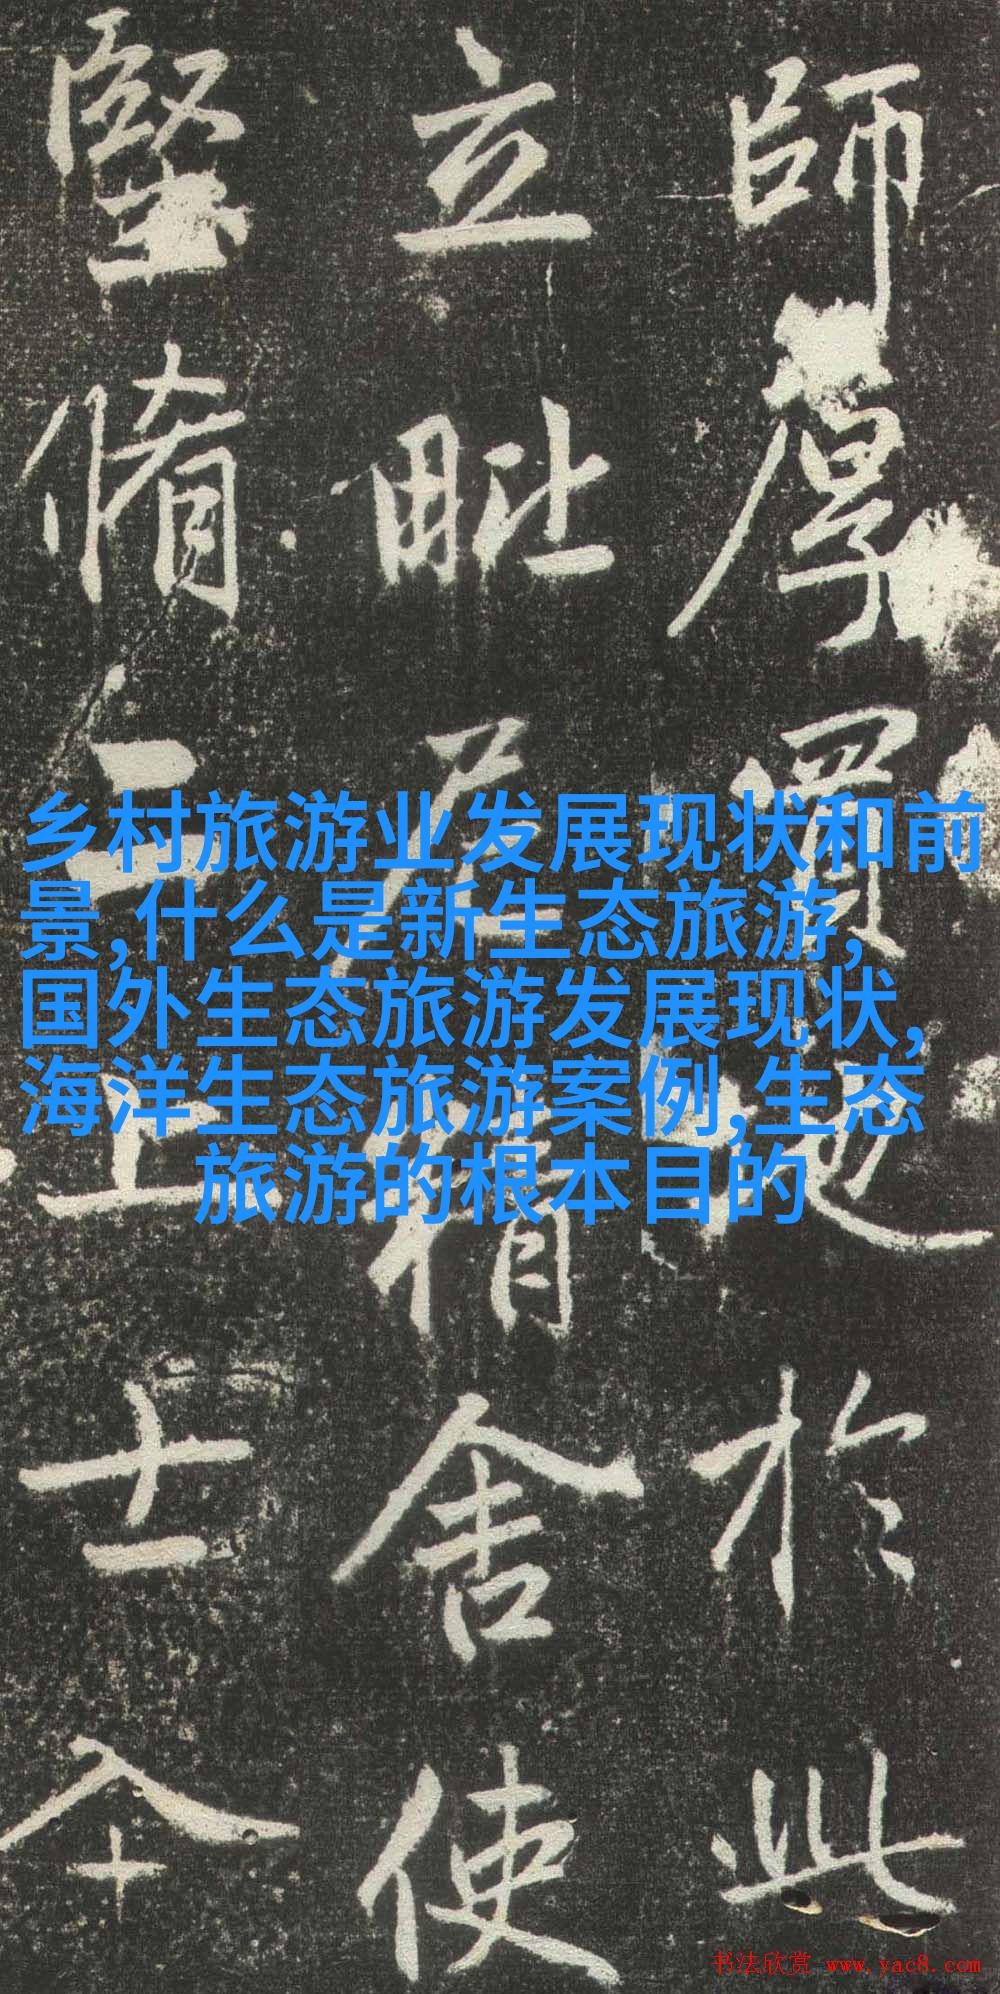 師厚買地於此
立毗尼精舍使
堅脩二上士仝
乡村旅游业发展现状和前
景,什么是新生态旅游,
国外生态旅游发展现状,
海洋生态旅游案例,生态
旅游的根本目的
书法欣赏 www.yac8.com